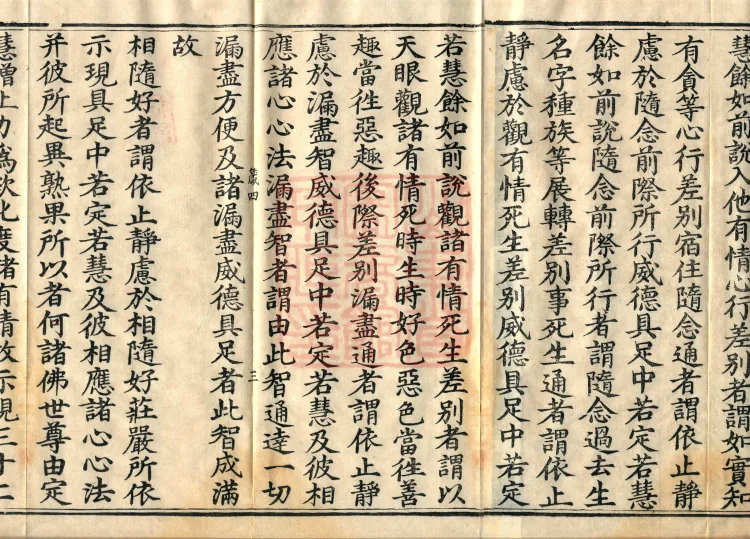 慧餘如前說入他有情心行差別者謂如實知
有貪等心行差別宿住隨念通者謂依止靜
慮於隨念前際所行威德具足中若定若慧
餘如前說隨念前際所行者謂隨念過去生
名字種族等展轉差別事死生通者謂依止
靜慮於觀有情死生差別威德具足中若定
若慧餘如前說觀諸有情死生差別者謂以
天眼觀諸有情死時生時好色惡色當徃善
趣當徃惡趣後際差別漏盡通者謂依止靜
慮於漏盡智威德具足中若定若慧及彼相
應諸心心法漏盡智者謂由此智通達一切
歲四
三
漏盡方便及諸漏盡威德具足者此智成滿
故
相隨好者謂依止靜慮於相隨好莊嚴所依
示現具足中若定若慧及彼相應諸心心法
并彼所起異熟果所以者何諸佛世尊由定
慧增上力爲欲化度諸有情故示現三十二